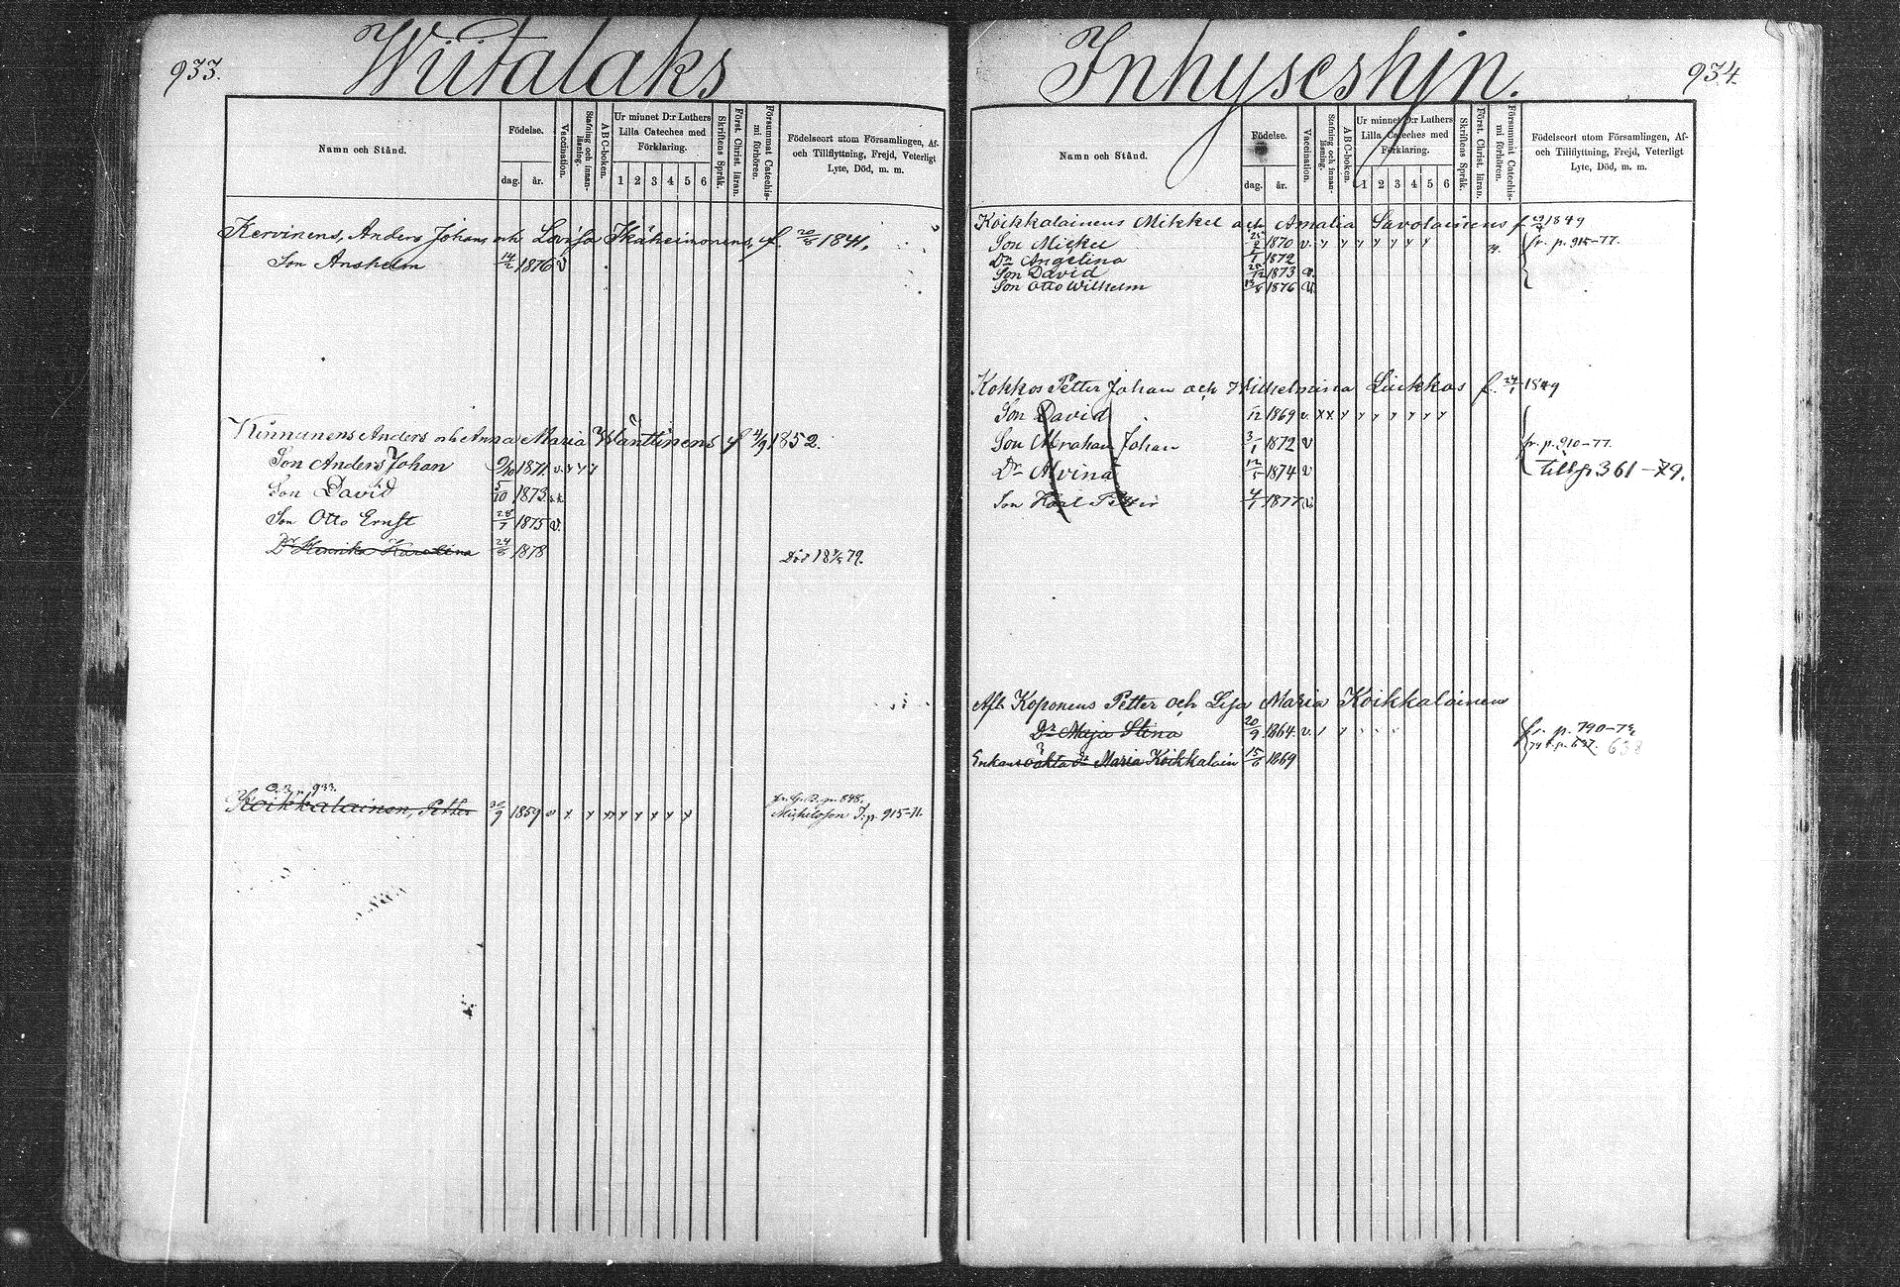 933.
Wiitalaks
Namn och Stånd.
Födelse.
dag. år.
Vaccination.
Stafning och innan-läsning.
ABC-boken.
Ur minnet D:r Luthers
Lilla Cateches med
Förklaring.
1 2 3 4 5 6
Skriftens Språk.
Först. Christ. läran.
Försummat Catechis-mi förhören.
Födelseort utom Församlingen, Af-
och Tillflyttning, Frejd, Veterligt
Lyte, Död, m. m.
Kervinens, Anders Johans och Lovisa Ikäheimonens, f. 20/6 1841.
Son Anshelm 14/2 1876 v
Kinnunens Anders och Anna Maria Wänttinens f 4/9 1852.
Son Anders Johan 9/10 1871. v. y y y
Son David 5/10 1873
Son Otto Ernst 28/7 1875 v.
Dr Henrika Karolina 24/6 1878 Död 79.
p. 933.
Koikkalainen, Petter 30/9 1859 v y y y y y y y y p. 848.
Michelsson I. p. 915-71.
934.
Inhyseshjn.
Namn och Stånd.
Födelse.
dag. år.
Vaccination.
Stafning och innan-läsning.
ABC-boken.
Ur minnet D:r Luthers
Lilla Cateches med
Förklaring.
1 2 3 4 5 6
Skriftens Språk.
Först. Christ. läran.
Försummat Catechis-mi förhören.
Födelseort utom Församlingen, Af-
och Tillflyttning, Frejd, Veterligt
Lyte, Död, m. m.
Koikkalainens Mikkel och Amalia Savolainens f. 1849
Son Mickel 25/2 1870 v. y y y y y y y fr. p. 915-77.
Dr Angelina 1/1 1872
Son David 1873 v.
Son Otto Wilhelm 13/8 1876 v.
Kokkos Petter Johan och Wilhelmina Liukkos f. 24/1 1849
Son David 1869 v. x x y y y y y y y
Son Abraham Johan 3/1 1872 v fr. p. 910-77.
Dr Alvina 12/5 1874 v till p 361-79.
Son Karl Petter 4/7 1877 v.
Afl. Koponens Petter och Lisa Maria Koikkalainens
Dr Maja Stina 20/9 1864. v. fr. p. 790-
p. 637. 638
Enkans oäkta dr Maria Koikkalain 15/6 1869